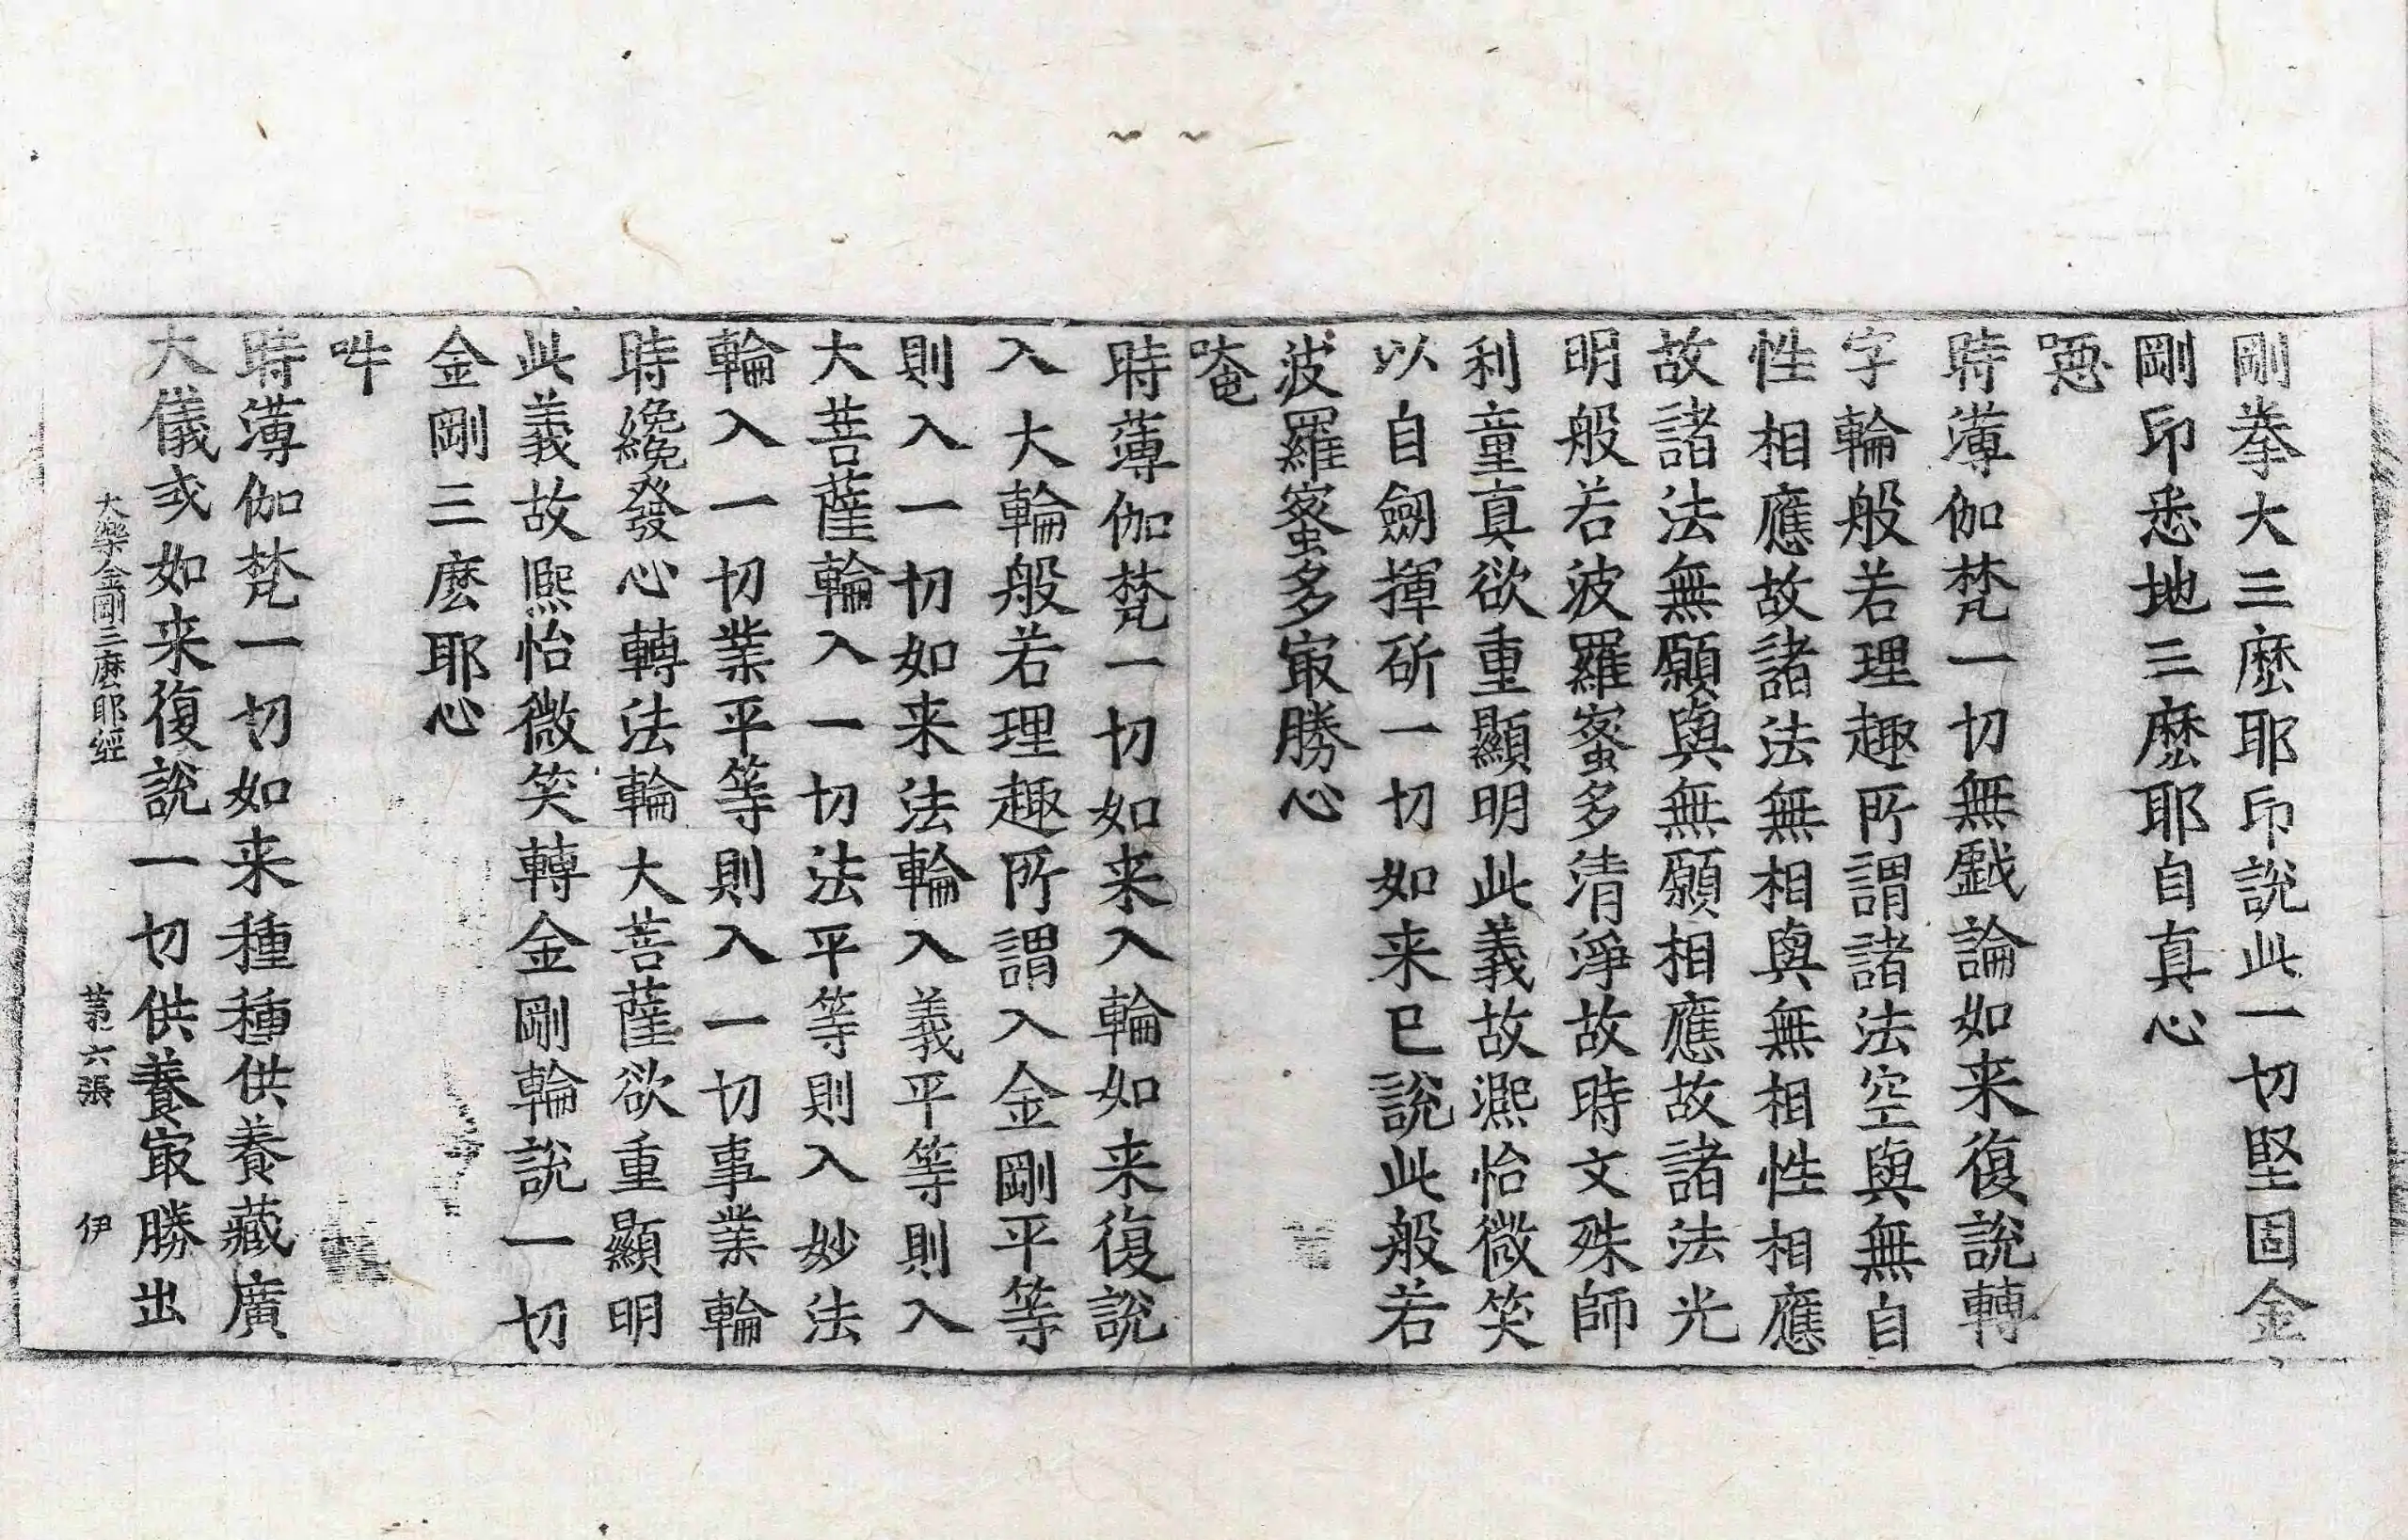 剛拳大三麽耶印說此一切堅固金
剛印悉地三麽耶自真心
𡄯
時薄伽梵一切無戱論如来復說轉
字輪般若理趣所謂諸法空與無自
性相應故諸法無相與無相性相應
故諸法無願與無願相應故諸法光
明般若波羅蜜多清淨故時文殊師
利童真欲重顯明此義故熈怡微笑
以自劒揮斫一切如来已說此般若
波羅蜜多㝡勝心
唵
時薄伽梵一切如来入輪如来復說
入大輪般若理趣所謂入金剛平等
則入一切如来法輪入義平等則入
大菩薩輪入一切法平等則入妙法
輪入一切業平等則入一切事業輪
時纔發心轉法輪大菩薩欲重顯明
此義故熈怡微笑轉金剛輪說一切
金剛三麽耶心
吽
時薄伽梵一切如来種種供養藏廣
大儀式如来復說一切供養㝡勝出
大樂金剛三麽耶經 第六張 伊